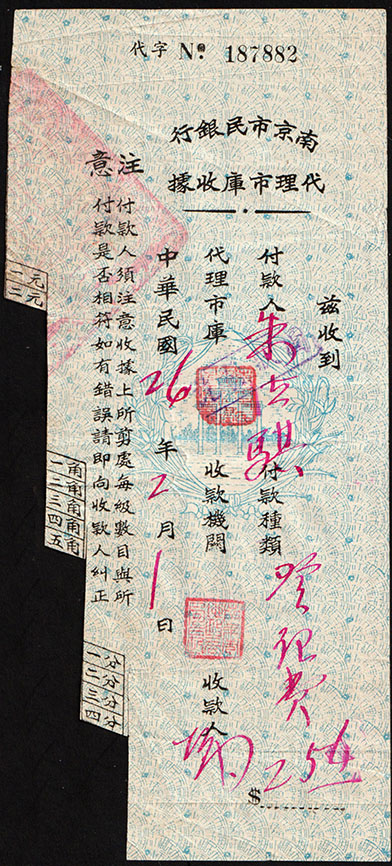 代字 Nº 187882
南京市民銀行
代理市庫收據
茲收到
付款人朱 騏付款種類登記費
代理市庫 收款機關 收款人
中華民國26年2月1日
$
注意
付款人須注意收據上所剪處每級數目與所
付款是否相符如有錯誤請即向收款人糾正
一元
二元
一角
二角
三角
四角
五角
一分
二分
三分
四分